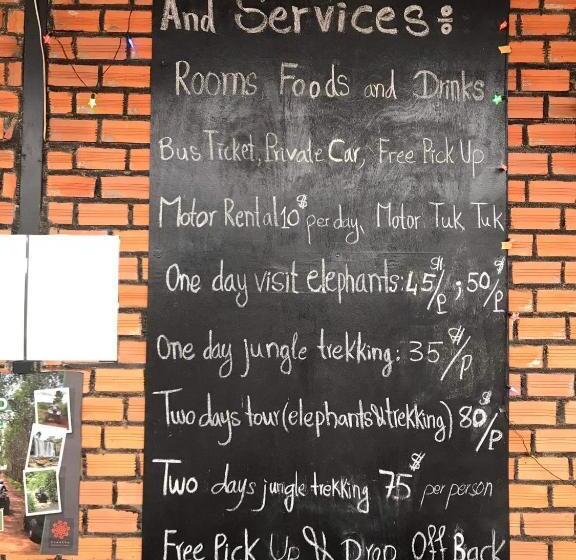 And Services:
Rooms Foods and Drinks
Bus Ticket, Private Car, Free Pick Up
Motor Rental 10$ per day, Motor Tuk Tuk
One day visit elephants: 45$/P ; 50$/P
One day jungle trekking: 35$/P
Two days tour (elephants & trekking) 80$/P
Two days jungle trekking 75$ per person
Free Pick Up & Drop Off Back